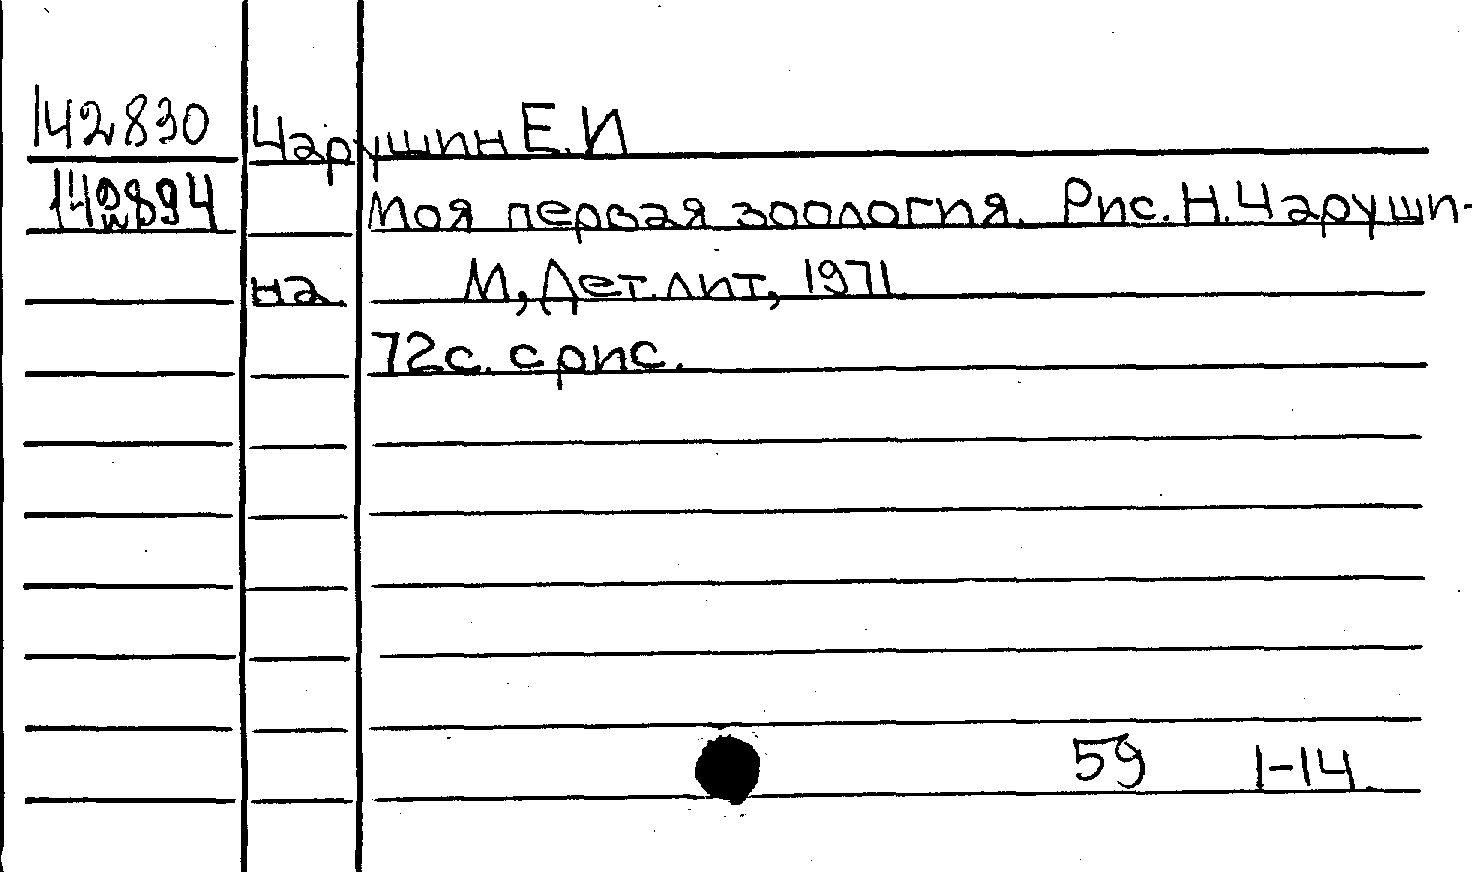 142830 Чарушин Е.И
142894 Моя первая зоология. Рис. Н. Чаруши-
на М, Дет. лит, 1971
72с. с рис.
59 1-14